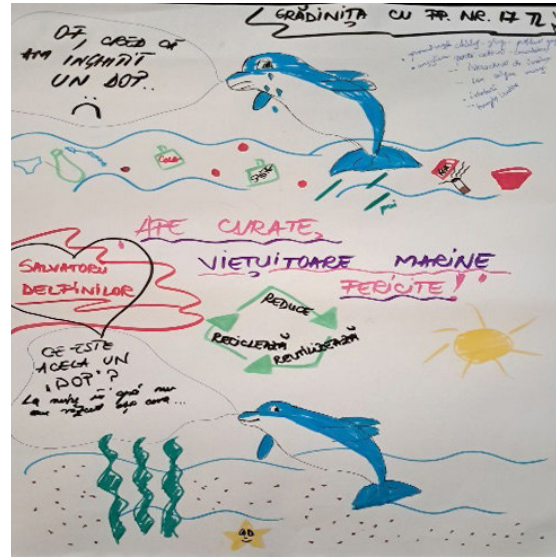 GRĂDINIȚA CU PP. NR. 17 TL
OF, CRED CĂ
AM ÎNGHIȚIT
UN DOP...
COLA
APE CURATE,
VIEȚUITOARE MARINE
FERICITE!
SALVATORII
DELFINILOR
REDUCE
RECICLEAZĂ
REUTILIZEAZĂ
CE ESTE
ACELA UN
„DOP"?
La noi în apă nu
am văzut așa ceva...